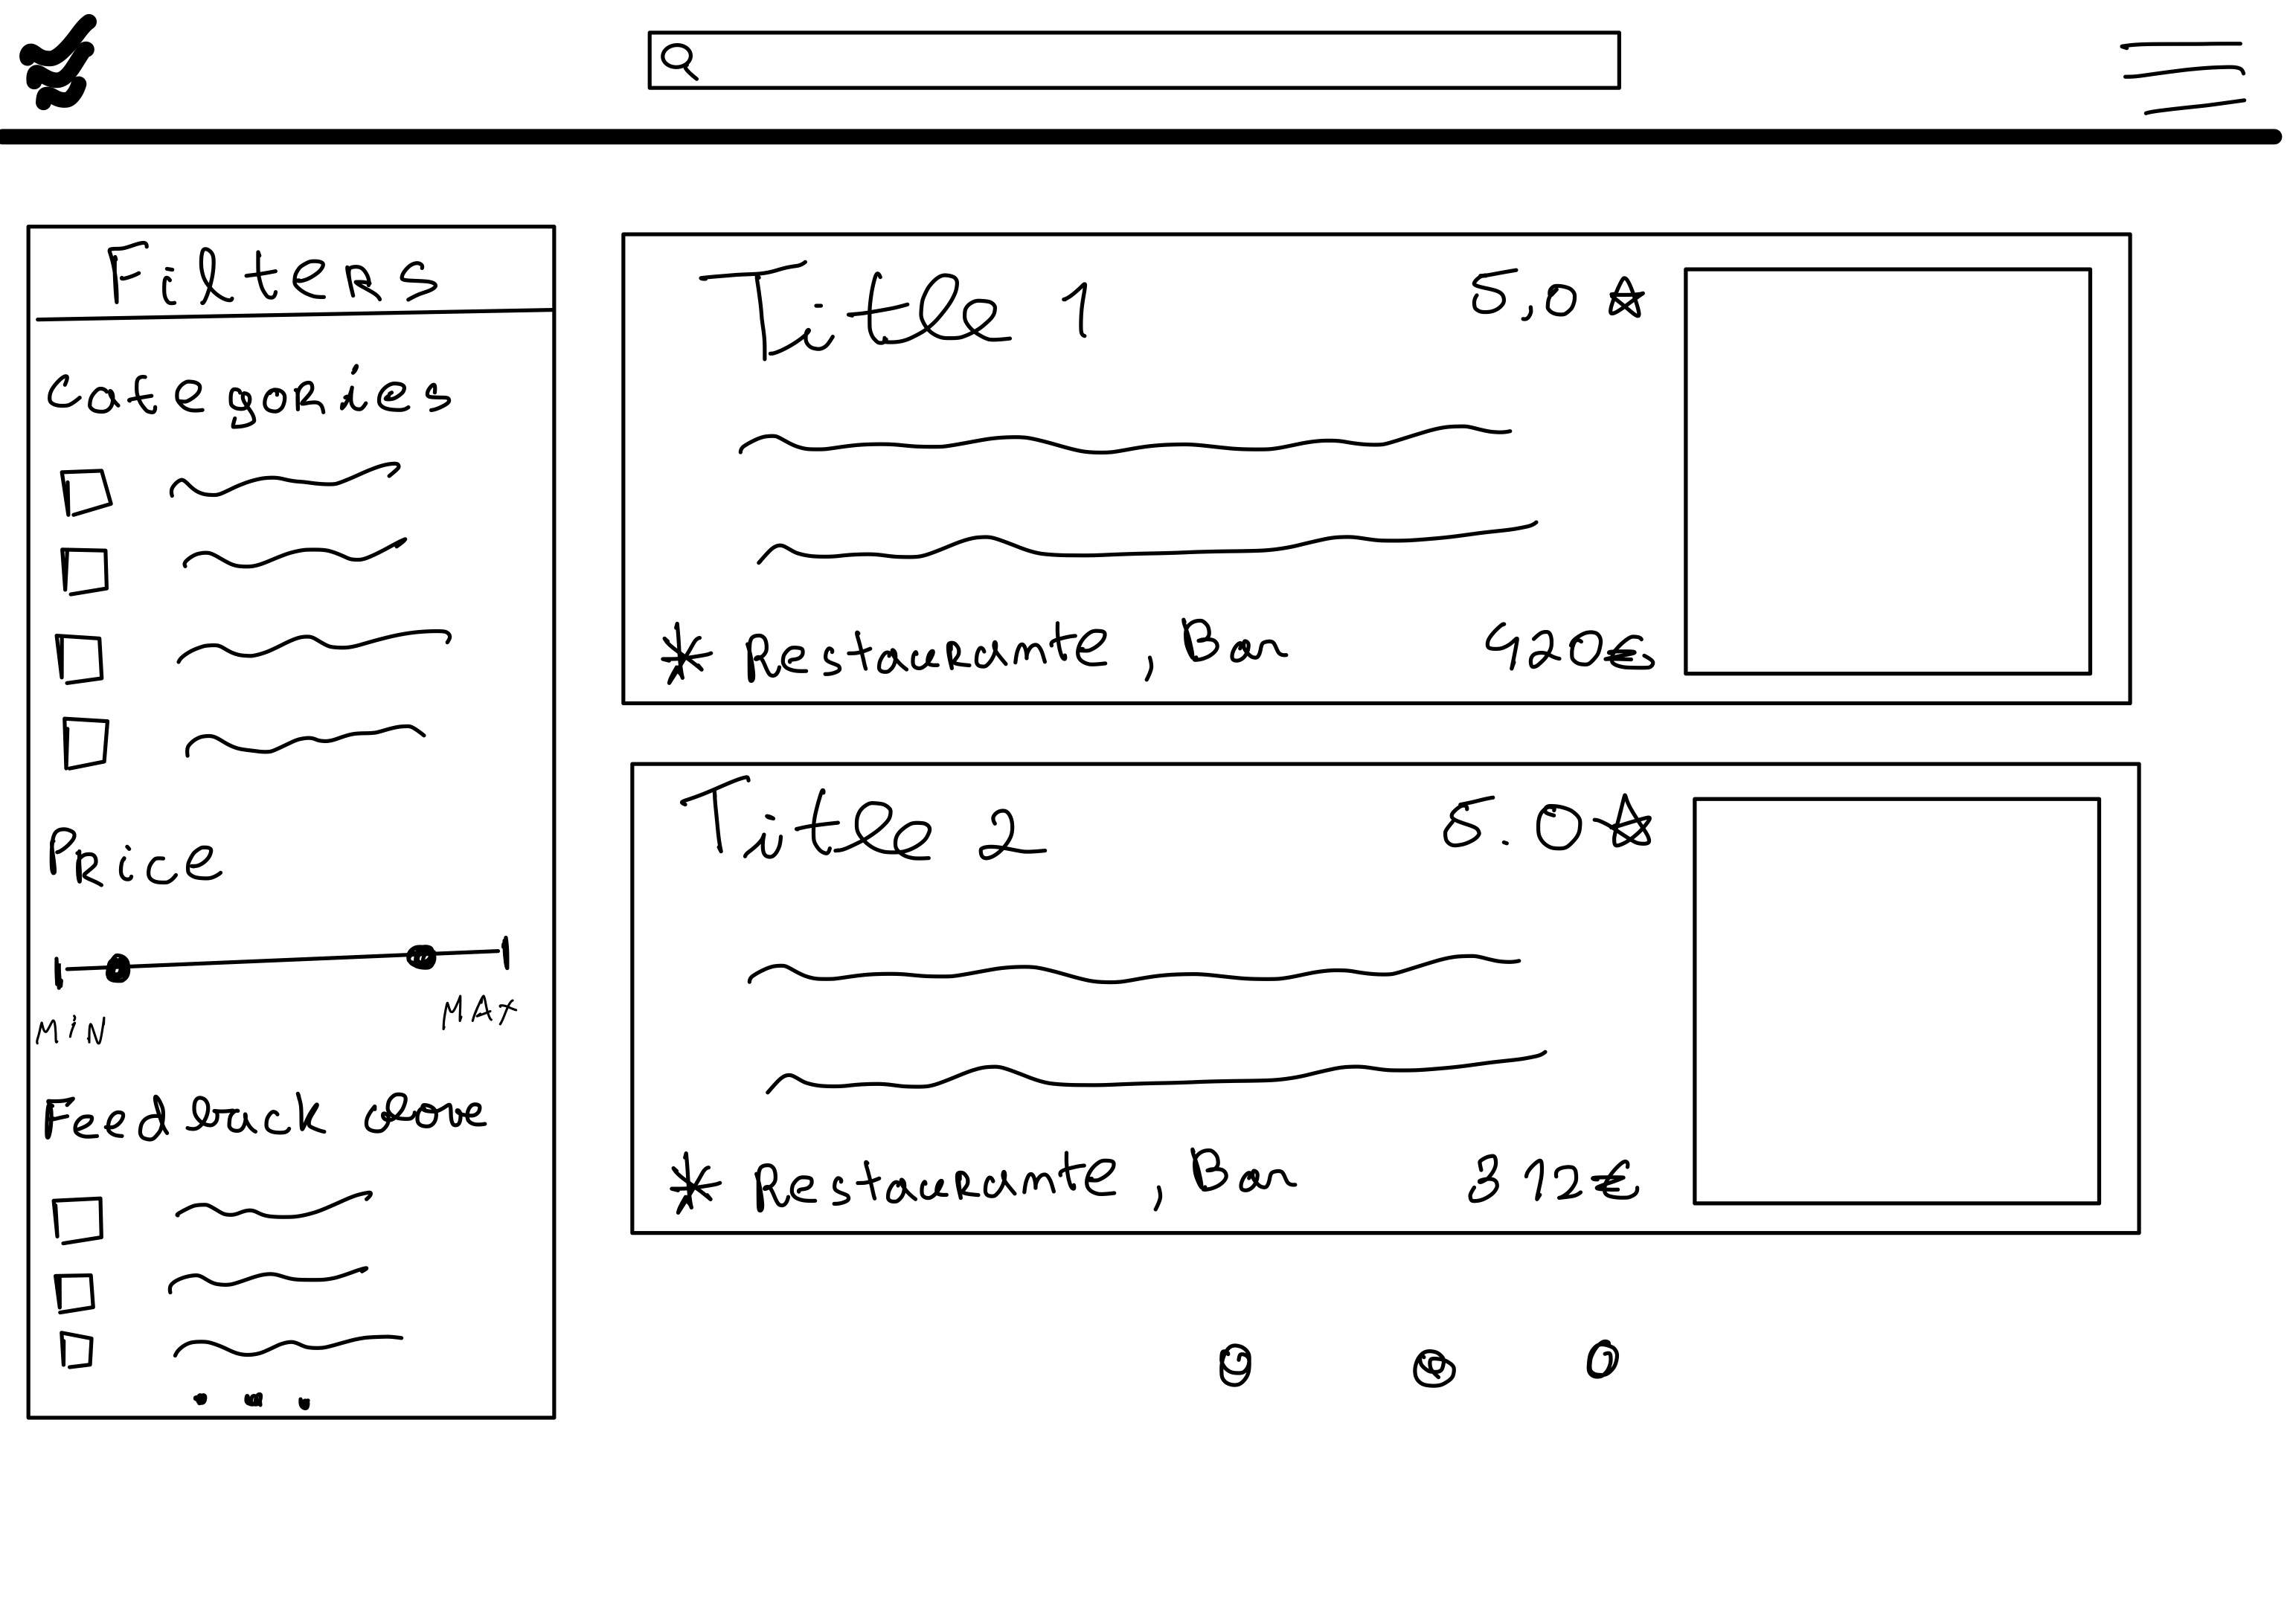 Filters
Categories
Price
MIN MAX
Feedback
Title 1 5.0
* Restaurante, Bar 420€
Title 2 5.0
* Restaurante, Bar 312€